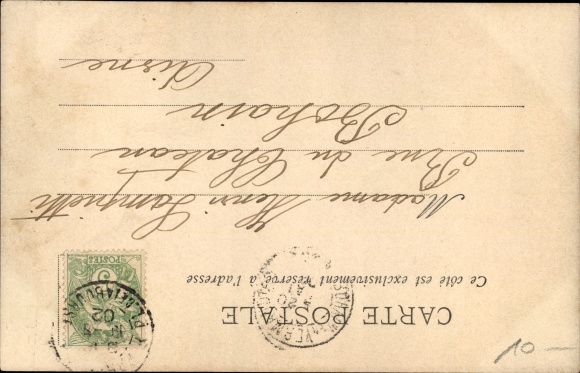 CARTE POSTALE
Ce côté est exclusivement réservé à l'adresse
POSTES
5
02
Madame Henri
Rue du Chateau
Bohain
Aisne
10 -